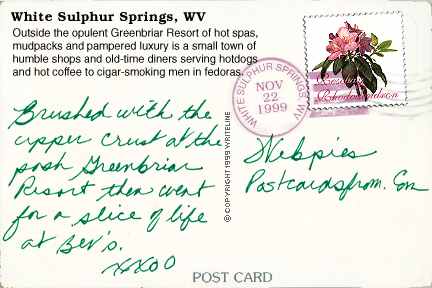 White Sulphur Springs, WV
Outside the opulent Greenbriar Resort of hot spas,
mudpacks and pampered luxury is a small town of
humble shops and old-time diners serving hotdogs
and hot coffee to cigar-smoking men in fedoras.
WHITE SULPHUR SPRINGS, WV
NOV
22
1999
Rosebay
Rhododendron
Brushed with the
upper crust at the
posh Greenbriar
Resort then went
for a slice of life
at Bev's.
xxoo
© COPYRIGHT 1999 WRITELINE
Webpies
Postcardsfrom.Com
POST CARD